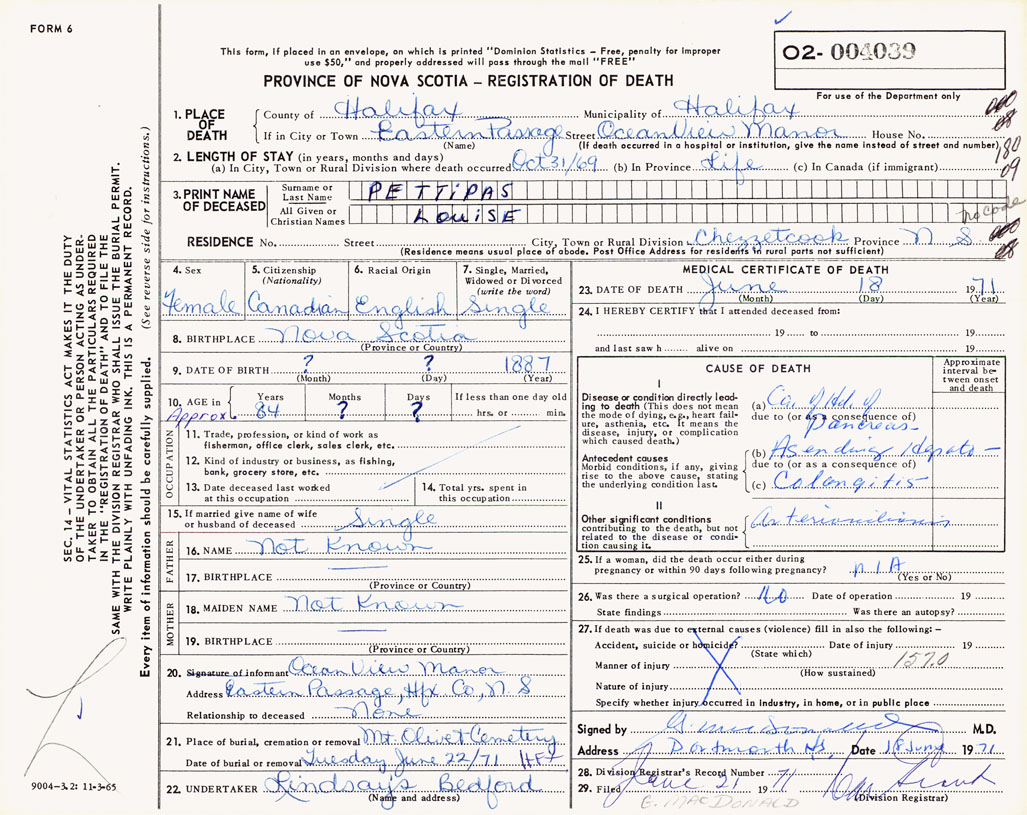 FORM 6
This form, if placed in an envelope, on which is printed "Dominion Statistics – Free, penalty for improper
use $50," and properly addressed will pass through the mail "FREE"
PROVINCE OF NOVA SCOTIA – REGISTRATION OF DEATH
O2- 004039
For use of the Department only
1. PLACE OF DEATH
County of Halifax Municipality of Halifax
If in City or Town Eastern Passage Street Ocean View Manor House No.
(Name) (If death occurred in a hospital or institution, give the name instead of street and number)
2. LENGTH OF STAY (in years, months and days)
(a) In City, Town or Rural Division where death occurred Oct 31/69 (b) In Province Life (c) In Canada (if immigrant)
3. PRINT NAME OF DECEASED
Surname or Last Name PETTIPAS
All Given or Christian Names LOUISE
no code
RESIDENCE No. Street City, Town or Rural Division Chezzetcook Province N S
(Residence means usual place of abode. Post Office Address for residents in rural parts not sufficient)
4. Sex Female
5. Citizenship (Nationality) Canadian
6. Racial Origin English
7. Single, Married, Widowed or Divorced (write the word) Single
8. BIRTHPLACE Nova Scotia
(Province or Country)
9. DATE OF BIRTH ? ? 1887
(Month) (Day) (Year)
10. AGE in Approx Years 84 Months ? Days ? If less than one day old hrs. or min.
OCCUPATION
11. Trade, profession, or kind of work as
fisherman, office clerk, sales clerk, etc.
12. Kind of industry or business, as fishing,
bank, grocery store, etc.
13. Date deceased last worked
at this occupation
14. Total yrs. spent in
this occupation
15. If married give name of wife
or husband of deceased Single
FATHER
16. NAME Not Known
17. BIRTHPLACE
(Province or Country)
MOTHER
18. MAIDEN NAME Not Known
19. BIRTHPLACE
(Province or Country)
20. Signature of informant Ocean View Manor
Address Eastern Passage, Hfx Co, N S
Relationship to deceased None
21. Place of burial, cremation or removal Mt. Olivet Cemetery
Date of burial or removal Tuesday June 22/71 HFX
22. UNDERTAKER Lindsay's Bedford
(Name and address)
MEDICAL CERTIFICATE OF DEATH
23. DATE OF DEATH June 18 1971
(Month) (Day) (Year)
24. I HEREBY CERTIFY that I attended deceased from:
19 to 19
and last saw h alive on 19
CAUSE OF DEATH
Approximate interval between onset and death
I
Disease or condition directly leading
to death (This does not mean
the mode of dying, e.g., heart failure,
asthenia, etc. It means the
disease, injury, or complication
which caused death.)
(a) Ca. of Hd. of
due to (or as a consequence of)
Pancreas
Antecedent causes
Morbid conditions, if any, giving
rise to the above cause, stating
the underlying condition last.
(b) Asending Hepato –
due to (or as a consequence of)
(c) Colangitis
II
Other significant conditions
contributing to the death, but not
related to the disease or condition
causing it.
25. If a woman, did the death occur either during
pregnancy or within 90 days following pregnancy? N/A
(Yes or No)
26. Was there a surgical operation? No Date of operation 19
State findings Was there an autopsy?
27. If death was due to external causes (violence) fill in also the following: –
Accident, suicide or homicide? Date of injury 19
(State which)
Manner of injury 157.0
(How sustained)
Nature of injury
Specify whether injury occurred in industry, in home, or in public place
Signed by M.D.
Address Dartmouth NS Date 18 June 1971
28. Division Registrar's Record Number 71
29. Filed June 21 1971
(Division Registrar)
E. MACDONALD
SEC. 14 – VITAL STATISTICS ACT MAKES IT THE DUTY
OF THE UNDERTAKER OR PERSON ACTING AS UNDER-
TAKER TO OBTAIN ALL THE PARTICULARS REQUIRED
IN THE "REGISTRATION OF DEATH" AND TO FILE THE
SAME WITH THE DIVISION REGISTRAR WHO SHALL ISSUE THE BURIAL PERMIT.
WRITE PLAINLY WITH UNFADING INK. THIS IS A PERMANENT RECORD.
Every item of information should be carefully supplied. (See reverse side for instructions.)
9004-3.2: 11-3-65